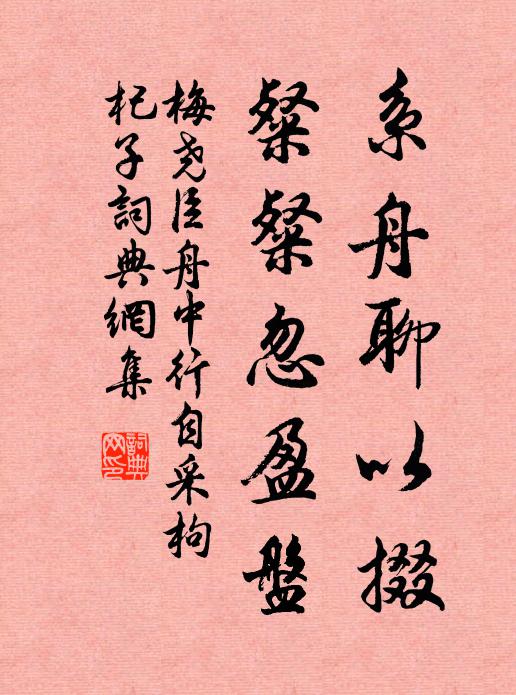 系舟聊以掇
粲粲忽盈盤
梅尧臣舟中行自采枸
杞子詞典網集
詞典
网印